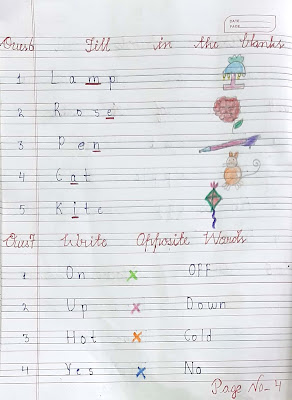 DATE
PAGE
Ques6 Fill in the blanks
1 Lamp
2 Rose
3 Pen
4 Cat
5 Kite
Ques7 Write Opposite Words
1 On × OFF
2 Up × Down
3 Hot × Cold
4 Yes × No
Page No-4